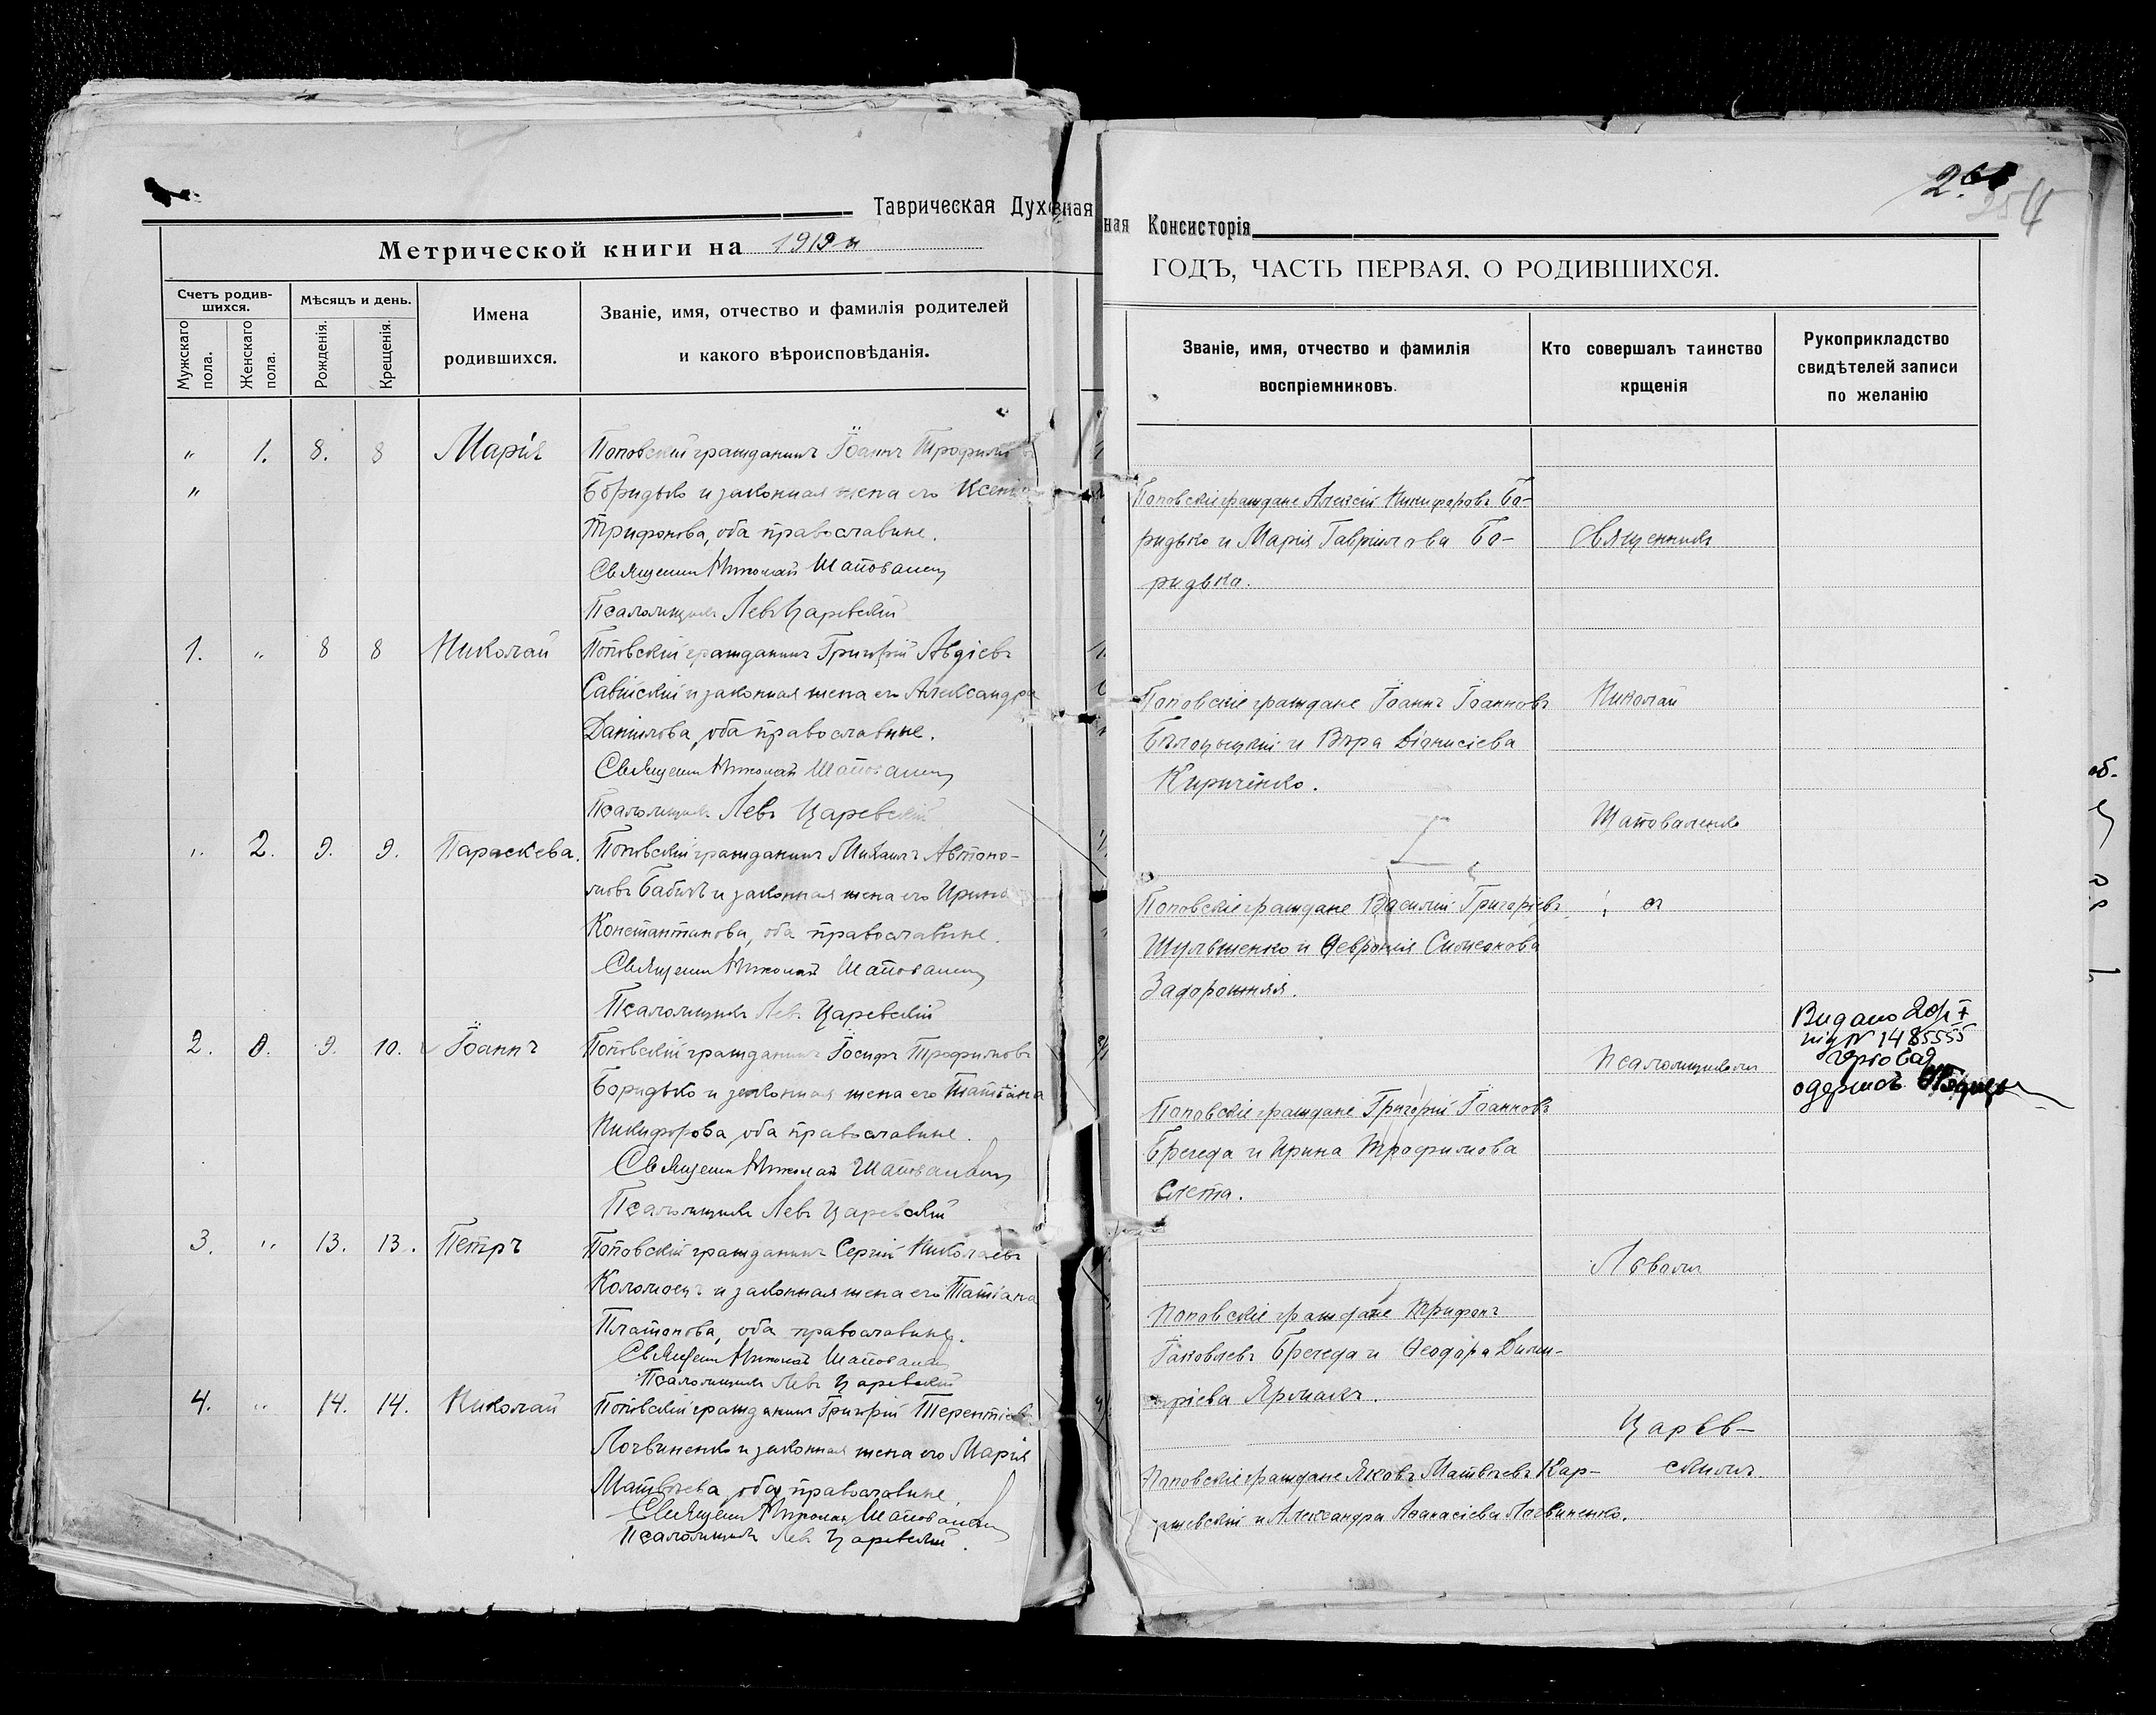 Таврическая Духовная
Метрической книги на 1919 г.
Счетъ родив-
шихся.
Мѣсяцъ и день.
Мужскаго пола.
Женскаго пола.
Рожденія.
Крещенія.
Имена
родившихся.
Званіе, имя, отчество и фамилія родителей
и какого вѣроисповѣданія.
" 1. 8. 8 Марія Поповскій гражданинъ Іоаннъ Трофимовъ
" Боридько и законная жена его Ксенія
Трифонова, оба православные.
Священникъ Николай Шаповаленко
Псаломщикъ Левъ Царевскій
1. " 8 8 Николай Поповскій гражданинъ Григорій Авдіевъ
Савійскій и законная жена его Александра
Даніилова, оба православные.
Священникъ Николай Шаповаленко
Псаломщикъ Левъ Царевскій
" 2. 9. 9. Параскева. Поповскій гражданинъ Михаилъ Автоно-
мовъ Бабичъ и законная жена его Ирина
Константинова, оба православные.
Священникъ Николай Шаповаленко
Псаломщикъ Левъ Царевскій
2. 0. 9. 10. Іоаннъ Поповскій гражданинъ Іосифъ Трофимовъ
Боридько и законная жена его Татіана
Никифорова, оба православные.
Священникъ Николай Шаповаленко
Псаломщикъ Левъ Царевскій
3. " 13. 13. Петръ Поповскій гражданинъ Сергій Николаевъ
Коломоецъ и законная жена его Татіана
Платонова, оба православные.
Священникъ Николай Шаповаленко
Псаломщикъ Левъ Царевскій
4. " 14. 14. Николай Поповскій гражданинъ Григорій Терентіевъ
Логвиненко и законная жена его Марія
Матвѣева, оба православные.
Священникъ Николай Шаповаленко
Псаломщикъ Левъ Царевскій.
254
ная Консисторія
ГОДЪ, ЧАСТЬ ПЕРВАЯ, О РОДИВШИХСЯ.
Званіе, имя, отчество и фамилія
воспріемниковъ.
Кто совершалъ таинство
крщенія
Рукоприкладство
свидѣтелей записи
по желанію
Поповскіе граждане Алексій Никифоровъ Бо-
ридько и Марія Гавріилова Бо-
ридька.
Священникъ
Поповскіе граждане Іоаннъ Іоанновъ
Бѣлоцыцкій и Вѣра Діонисіева
Кириченко.
Николай
Шаповаленко
Поповскіе граждане Василій Григоріевъ
Шульженко и Февронія Симеонова
Задорожняя.
съ
Псаломщикомъ
Видано
№ 1485555
одержав
Поповскіе граждане Григорій Іоанновъ
Брегеда и Ирина Трофимова
Слета.
Львомъ
Поповскіе граждане Трифонъ
Іаковлевъ Брегеда и Ѳеодора Дими-
тріева Ярмакъ.
Царев-
скимъ.
Поповскіе граждане Яковъ Матвѣевъ Кар-
жевскій и Александра Аѳанасіева Логвиненко.